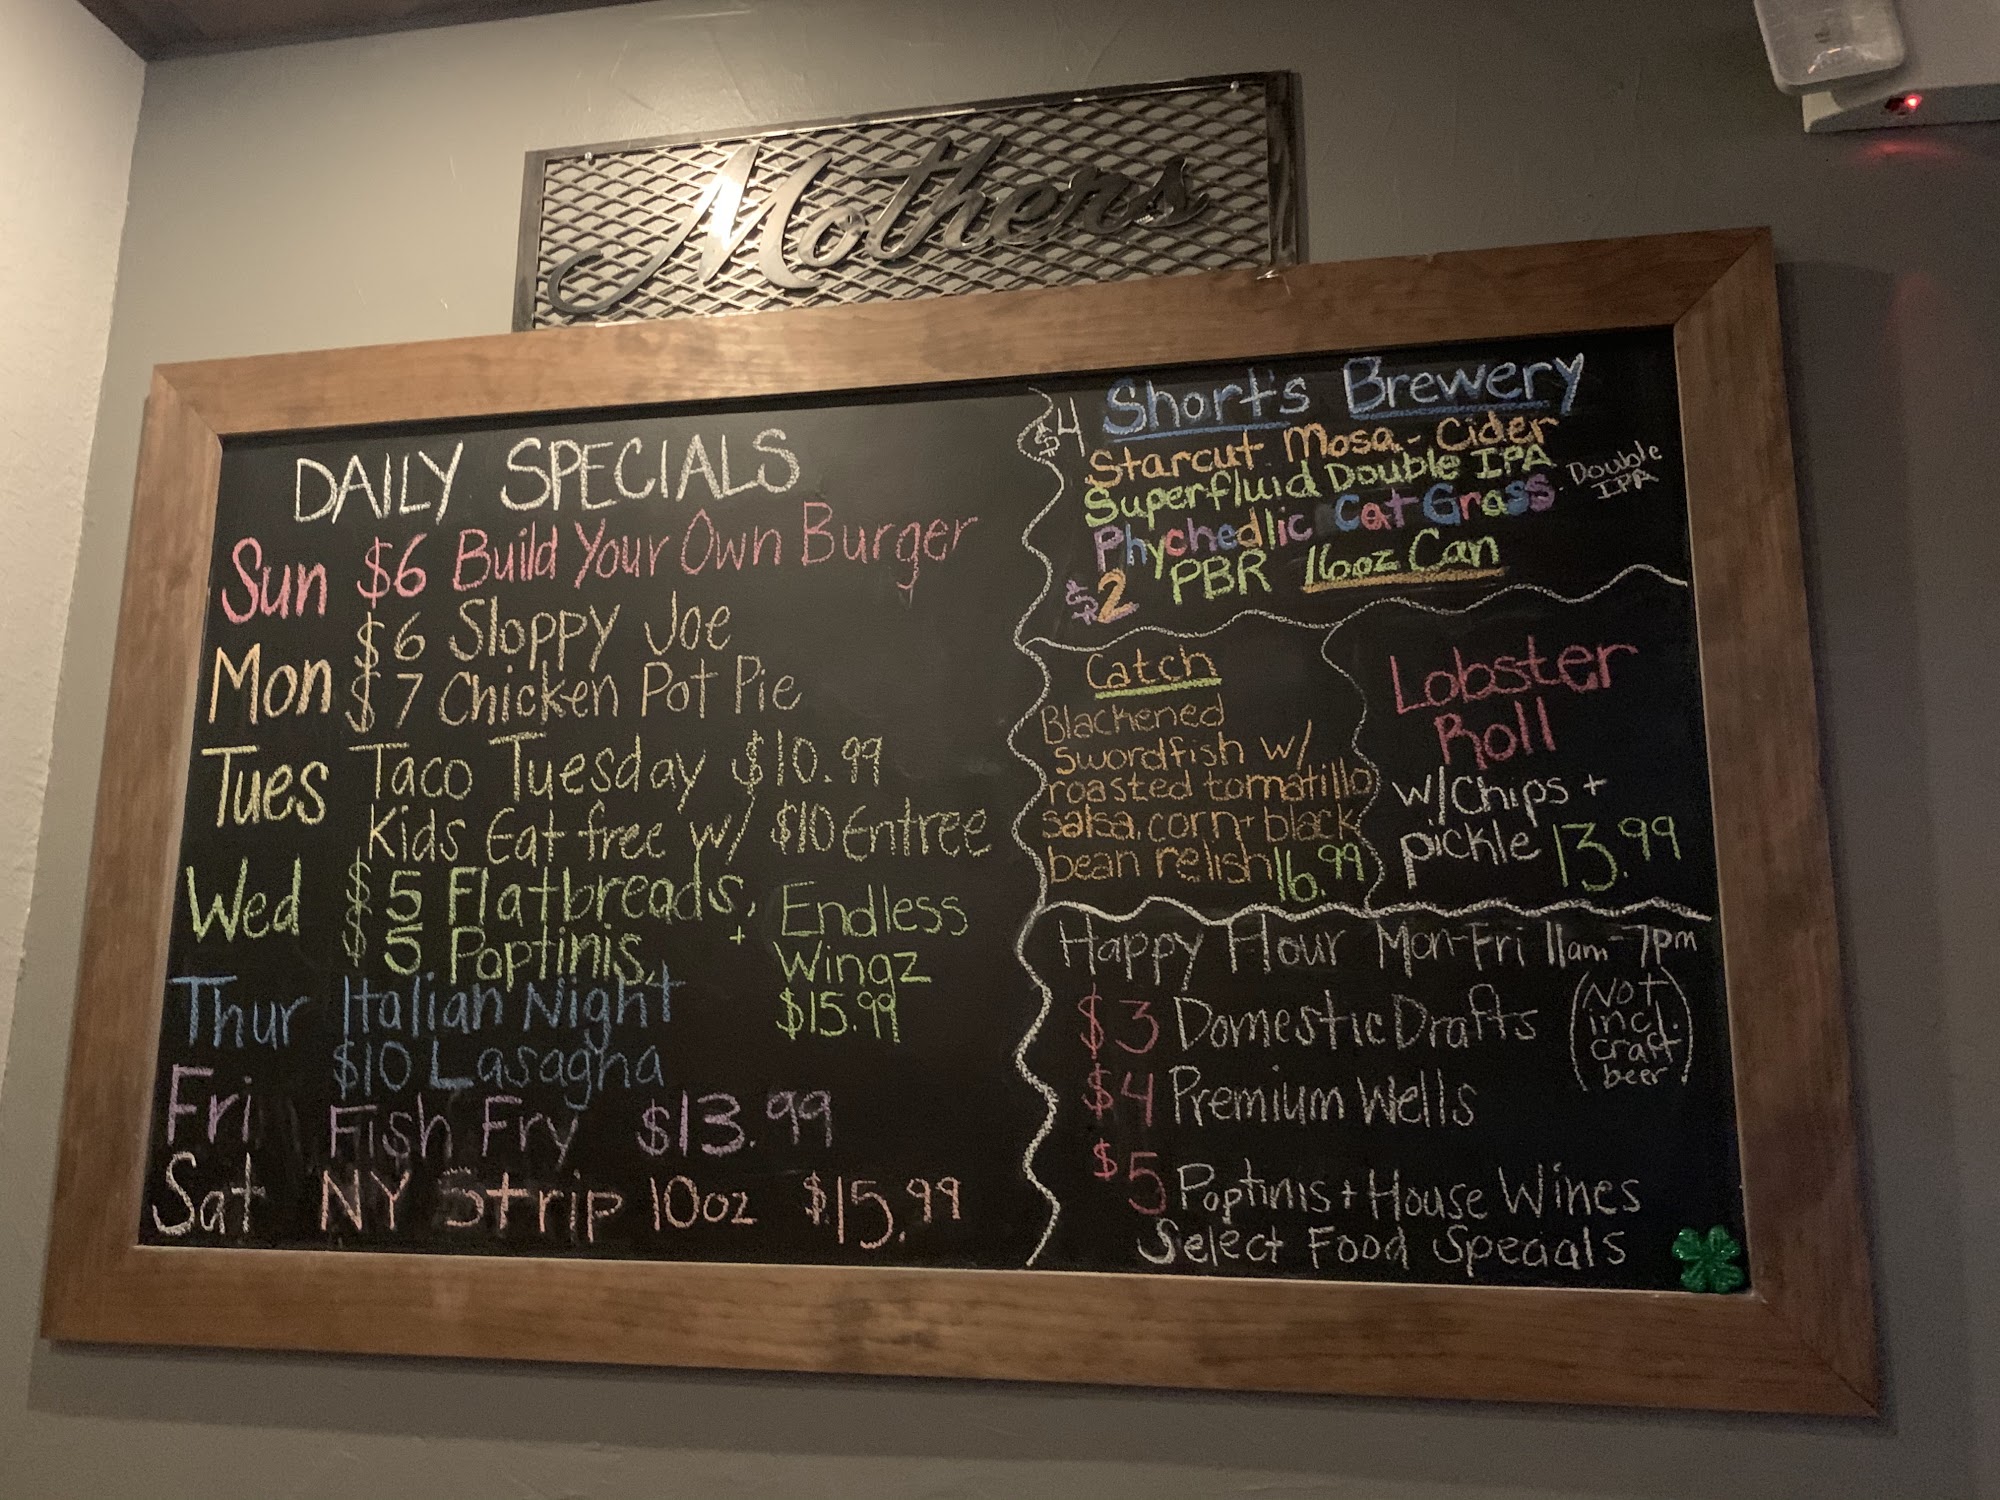 Mothers
DAILY SPECIALS
Sun $6 Build Your Own Burger
Mon $6 Sloppy Joe
$7 Chicken Pot Pie
Tues Taco Tuesday $10.99
Kids Eat free w/ $10 Entree
Wed $5 Flatbreads,
$5 Poptinis,
+ Endless
Wingz
$15.99
Thur Italian Night
$10 Lasagna
Fri Fish Fry $13.99
Sat NY Strip 10oz $15.99
$4 Short's Brewery
Starcut Mosa - Cider
Superfluid Double IPA
Phychedlic Cat Grass. Double
IPA
$2 PBR 16oz Can
Catch
Blackened
Swordfish w/
roasted tomatillo
salsa, corn + black
bean relish 16.99
Lobster
Roll
w/Chips +
pickle 13.99
Happy Hour Mon-Fri 11am-7pm
$3 Domestic Drafts
(Not
incl.
craft
beer)
$4 Premium Wells
$5 Poptinis + House Wines
Select Food Specials